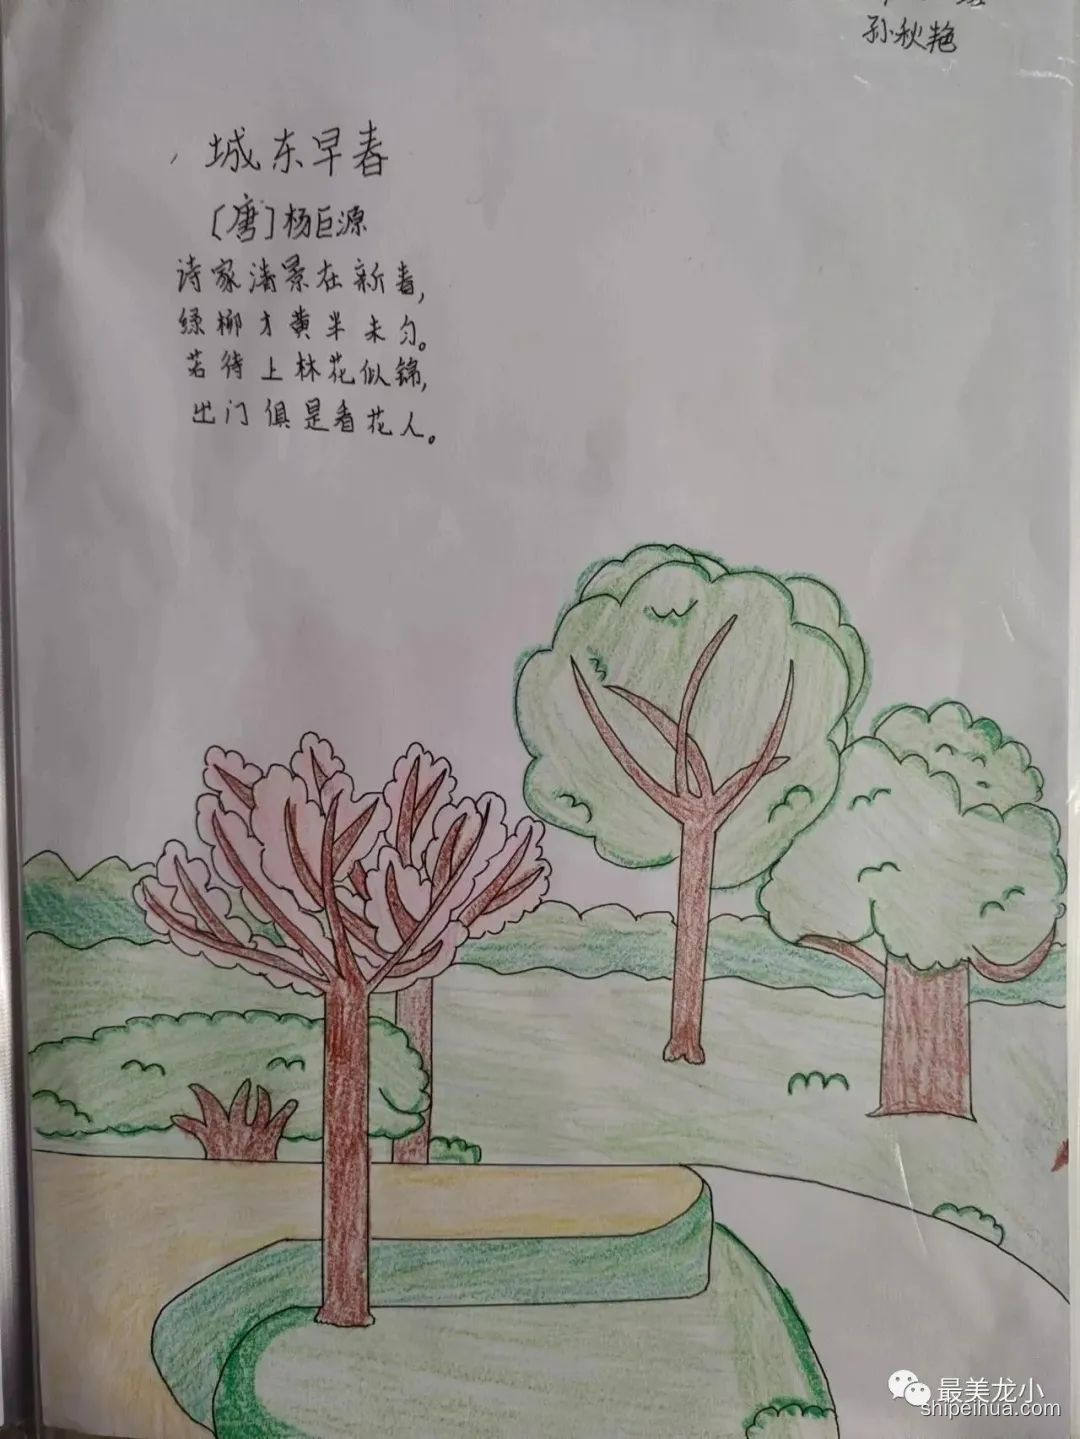 孙秋艳
城东早春
[唐]杨巨源
诗家清景在新春,
绿柳才黄半未匀。
若待上林花似锦,
出门俱是看花人。
最美龙小
shipeihua.com